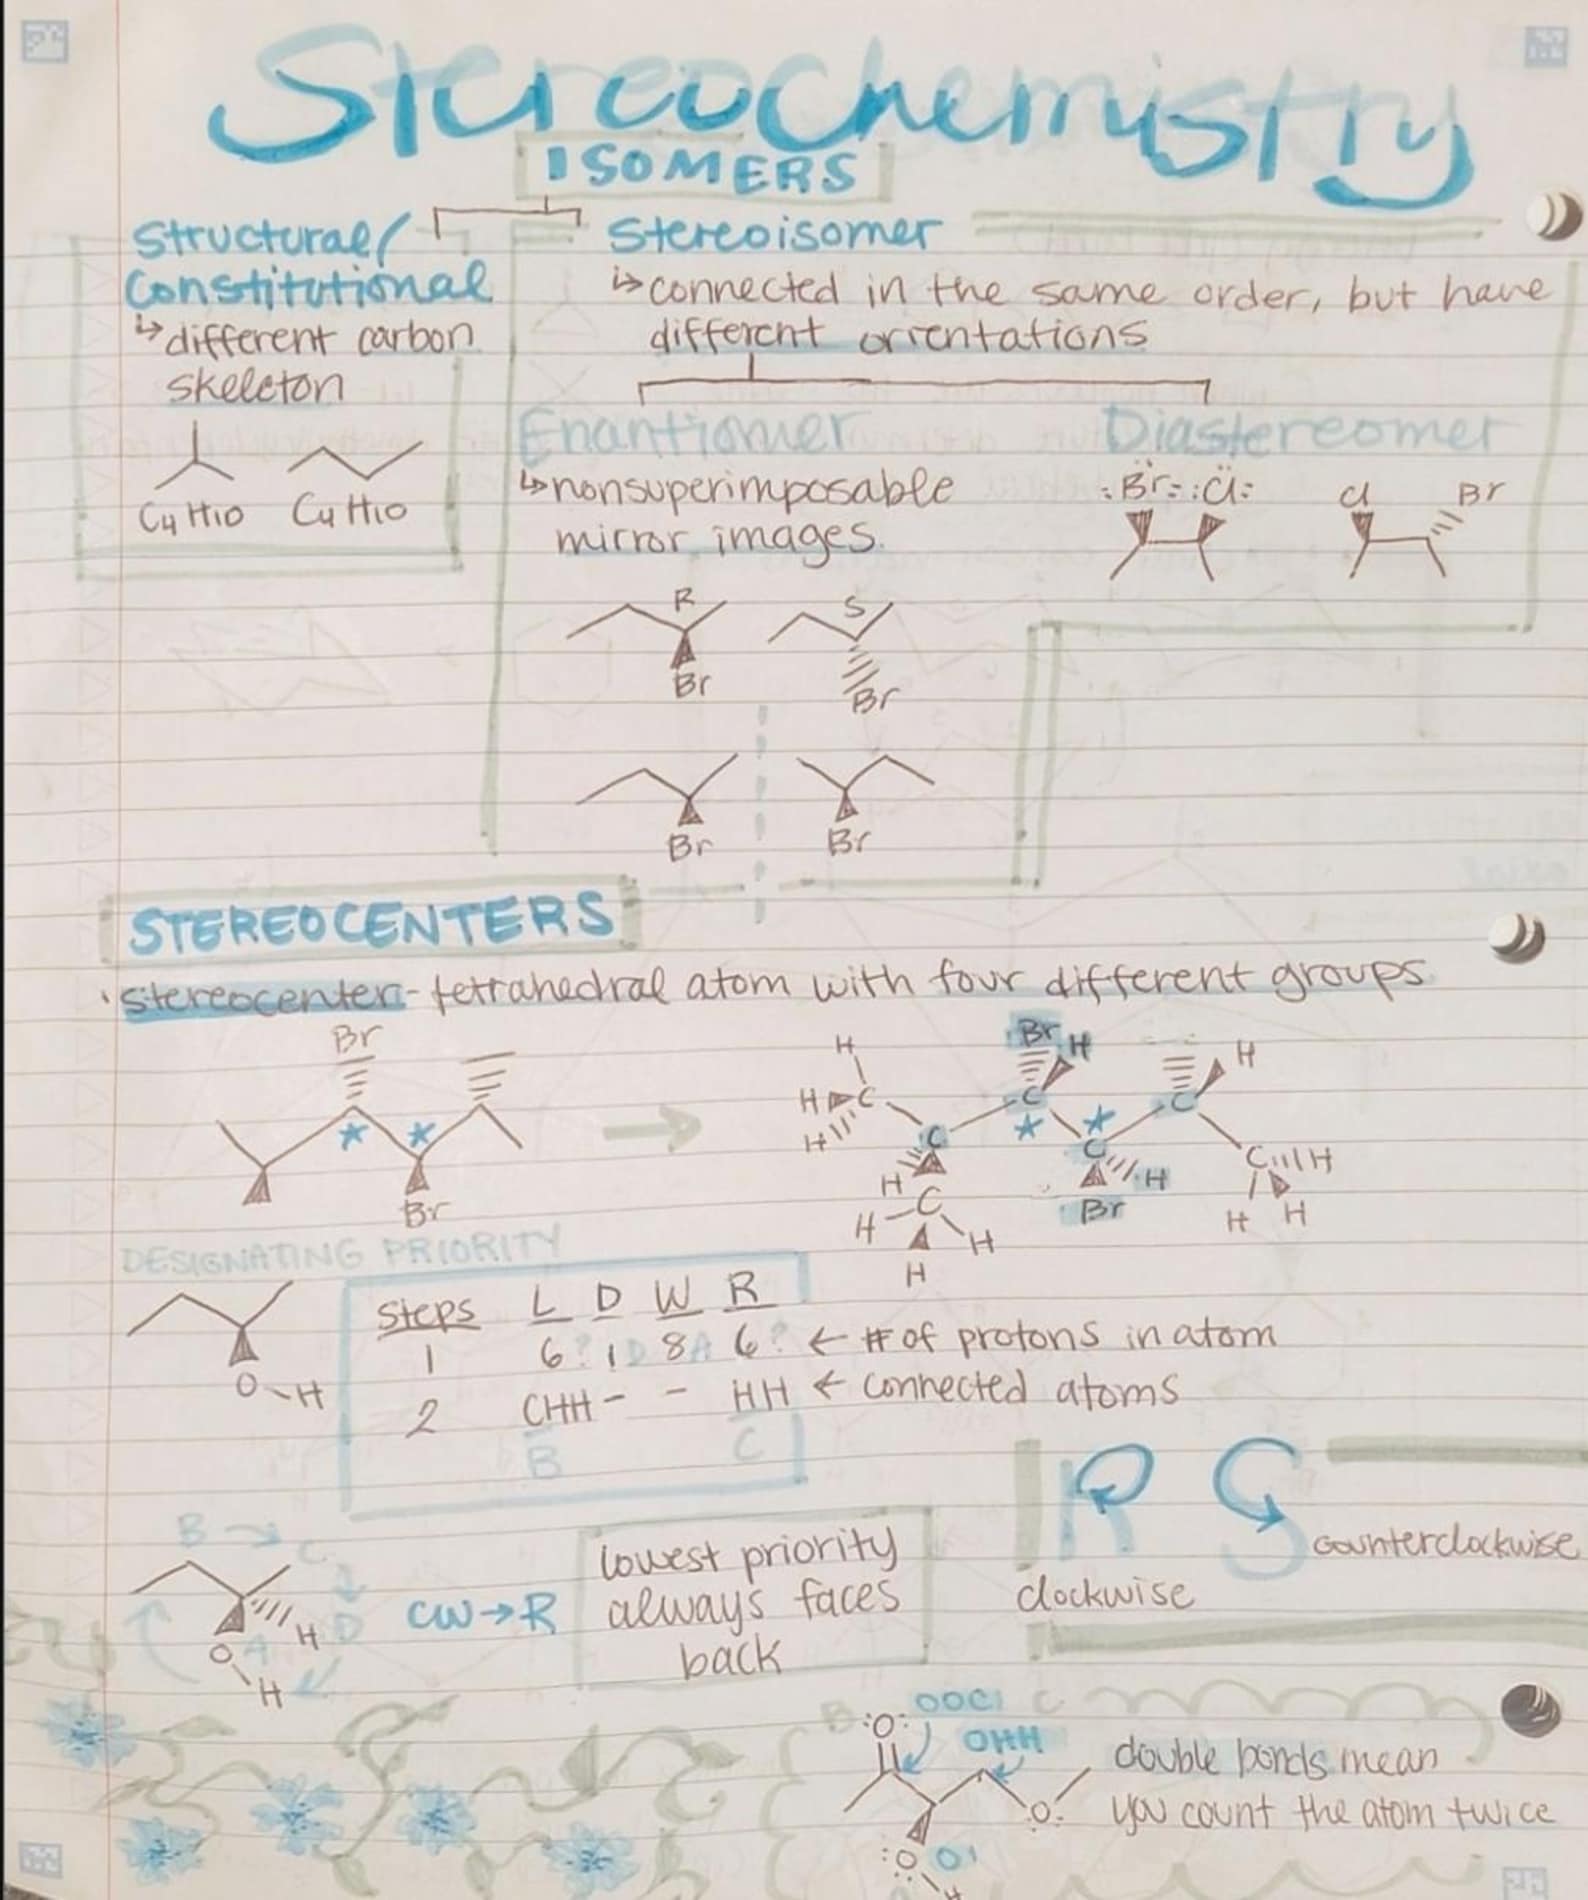 Stereochemistry
ISOMERS
Structural/
Constitutional
↳different carbon
skeleton
C4H10 C4H10
Stereoisomer
↳connected in the same order, but have
different orientations
Enantiomer
↳nonsuperimposable
mirror images.
R S
Br Br
Br Br
Diastereomer
:Br: :Cl: Cl Br
STEREOCENTERS
·stereocenter- tetrahedral atom with four different groups
Br
* *
Br
H Br H H
H C C C
H * *
C C C H
H H
C Br H H
H H
H
DESIGNATING PRIORITY
O-H
Steps L D W R
1 6? 1D 8A 6? ← # of protons in atom
2 CHH - - HH ← connected atoms
B C
R S
clockwise
counterclockwise
B → C
D
A
O H
H
CW→R
lowest priority
always faces
back
B :O: OOC C
OHH
:O:
:O: O
H
double bonds mean
you count the atom twice